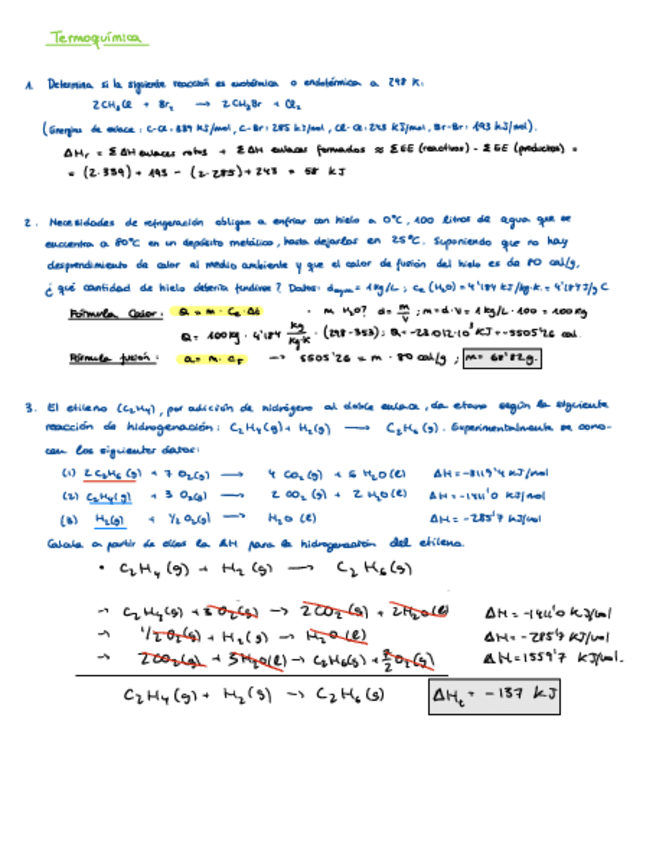 Termoquímica
1. Determina si la siguiente reacción es exotérmica o endotérmica a 298 K:
2 CH₃Cl + Br₂ → 2 CH₃Br + Cl₂
(Energías de enlace: C-Cl: 339 KJ/mol, C-Br: 285 KJ/mol, Cl-Cl: 243 KJ/mol, Br-Br: 193 KJ/mol).
ΔHr = Σ ΔH enlaces rotos + Σ ΔH enlaces formados ≈ Σ EE (reactivos) - Σ EE (productos) =
= (2·339) + 193 - (2·285) + 243 = 58 KJ
2. Necesidades de refrigeración obligan a enfriar con hielo a 0°C, 100 litros de agua que se
encuentra a 80°C en un depósito metálico, hasta dejarlos en 25°C. Suponiendo que no hay
desprendimiento de calor al medio ambiente y que el calor de fusión del hielo es de 80 cal/g,
¿qué cantidad de hielo debería fundirse? Datos: dagua = 1 Kg/L; ce (H₂O) = 4'184 KJ/Kg·K = 4'184 J/g C
Fórmula Calor: Q = m · Ce · Δt · m H₂O? d = m/V ; m = d·V = 1 kg/L · 100 = 100 Kg
Q = 100 Kg · 4'184 Kg/Kg·K · (298-353); Q = -23.012·10³ KJ = -5505'26 cal.
Fórmula fusión: Q = m · CF → 5505'26 = m · 80 cal/g ; m = 68'82 g.
3. El etileno (C₂H₄), por adición de hidrógeno al doble enlace, da etano según la siguiente
reacción de hidrogenación: C₂H₄ (g) + H₂ (g) → C₂H₆ (g). Experimentalmente se cono-
cen los siguientes datos:
(1) 2 C₂H₆ (g) + 7 O₂ (g) → 4 CO₂ (g) + 6 H₂O (l) ΔH = -3119'4 KJ/mol
(2) C₂H₄ (g) + 3 O₂ (g) → 2 CO₂ (g) + 2 H₂O (l) ΔH = -1411'0 KJ/mol
(3) H₂ (g) + 1/2 O₂ (g) → H₂O (l) ΔH = -285'7 KJ/mol
Calcula a partir de ellos la ΔH para la hidrogenación del etileno.
• C₂H₄ (g) + H₂ (g) → C₂H₆ (g)
→ C₂H₄ (g) + 3 O₂ (g) → 2 CO₂ (g) + 2 H₂O (l) ΔH = -1411'0 KJ/mol
→ 1/2 O₂ (g) + H₂ (g) → H₂O (l) ΔH = -285'7 KJ/mol
→ 2 CO₂ (g) + 3 H₂O (l) → C₂H₆ (g) + 7/2 O₂ (g) ΔH = 1559'7 KJ/mol.
C₂H₄ (g) + H₂ (g) → C₂H₆ (g) ΔHt = -137 KJ